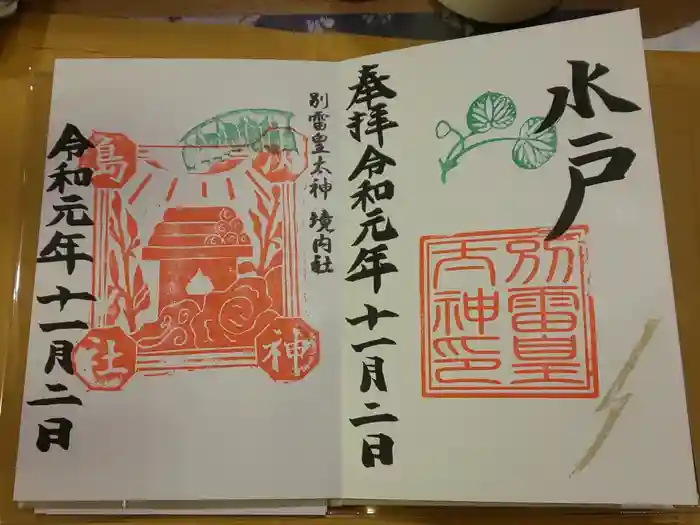 水戸
別雷皇
太神印
奉拝令和元年十一月二日
別雷皇太神 境内社
淡島神社
令和元年十一月二日